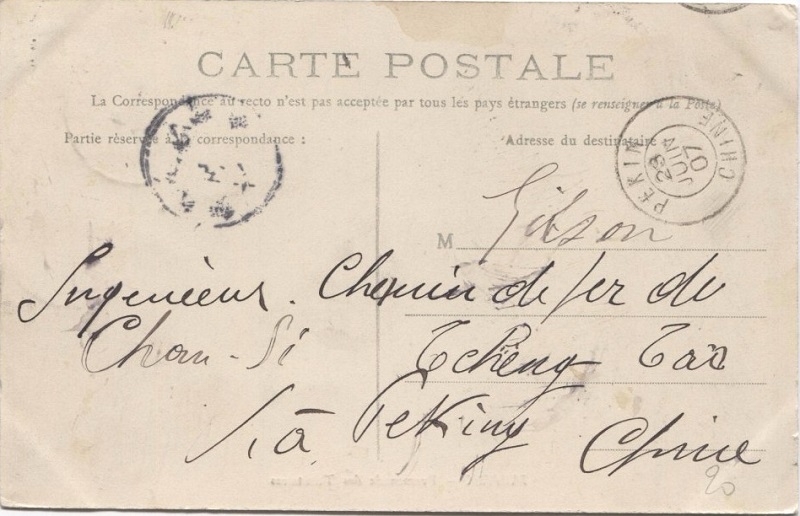 CARTE POSTALE
La Correspondance au recto n'est pas acceptée par tous les pays étrangers (se renseigner à la Poste)
Partie réservée à la correspondance :
Adresse du destinataire
PEKIN CHINE
23
JUIN
07
M Gibson
Ingenieur. Chemin de fer de
Chan-Si Tcheng Taï
à Peking Chine
20